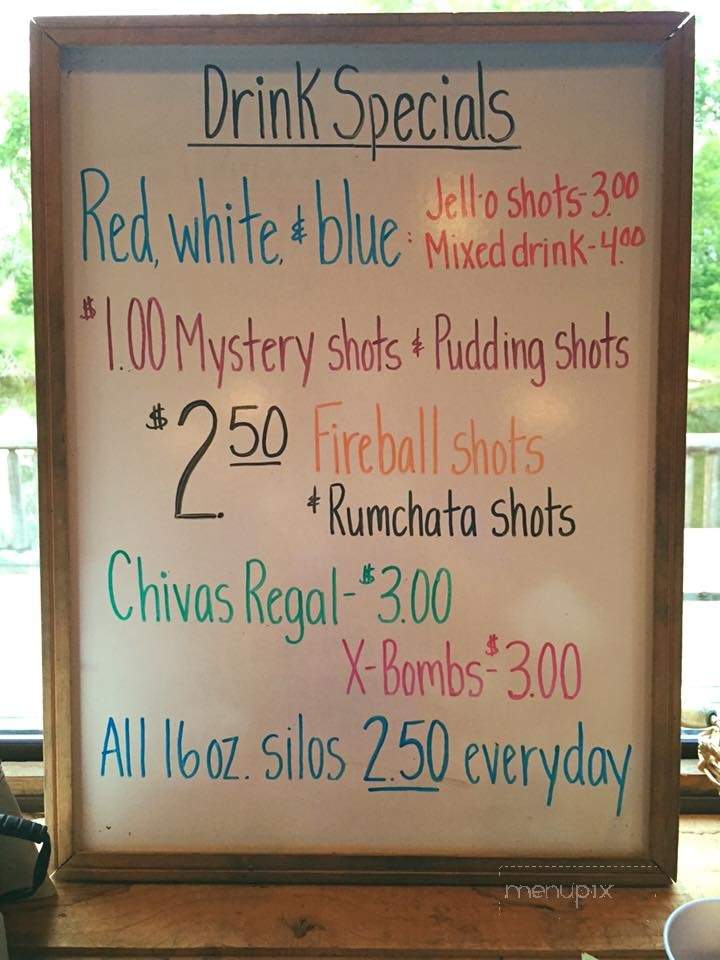 Drink Specials
Red, white, & blue: Jell-o shots-3.00
Mixed drink-4.00
$1.00 Mystery shots & Pudding shots
$2.50 Fireball shots
& Rumchata shots
Chivas Regal-$3.00
X-Bombs-$3.00
All 16oz. silos 2.50 everyday
menupix